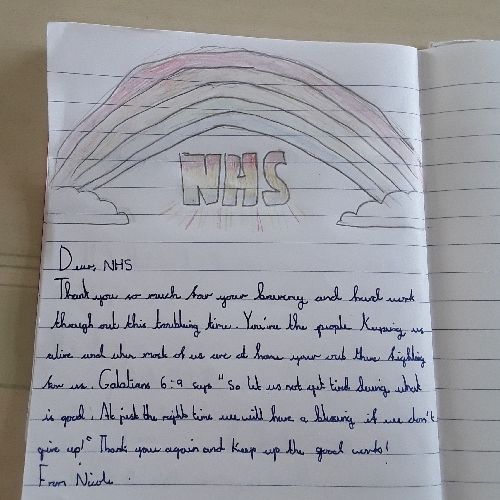 NHS
Dear, NHS
Thank you so much for your bravery and hard work
through out this troubling time. You're the people Keeping us
alive and when most of us are at home your out there fighting
for us. Galatians 6:9 says "So let us not get tired doing what
is good. At just the right time we will have a blessing if we don't
give up!" Thank you again and Keep up the good work!
From Nicole